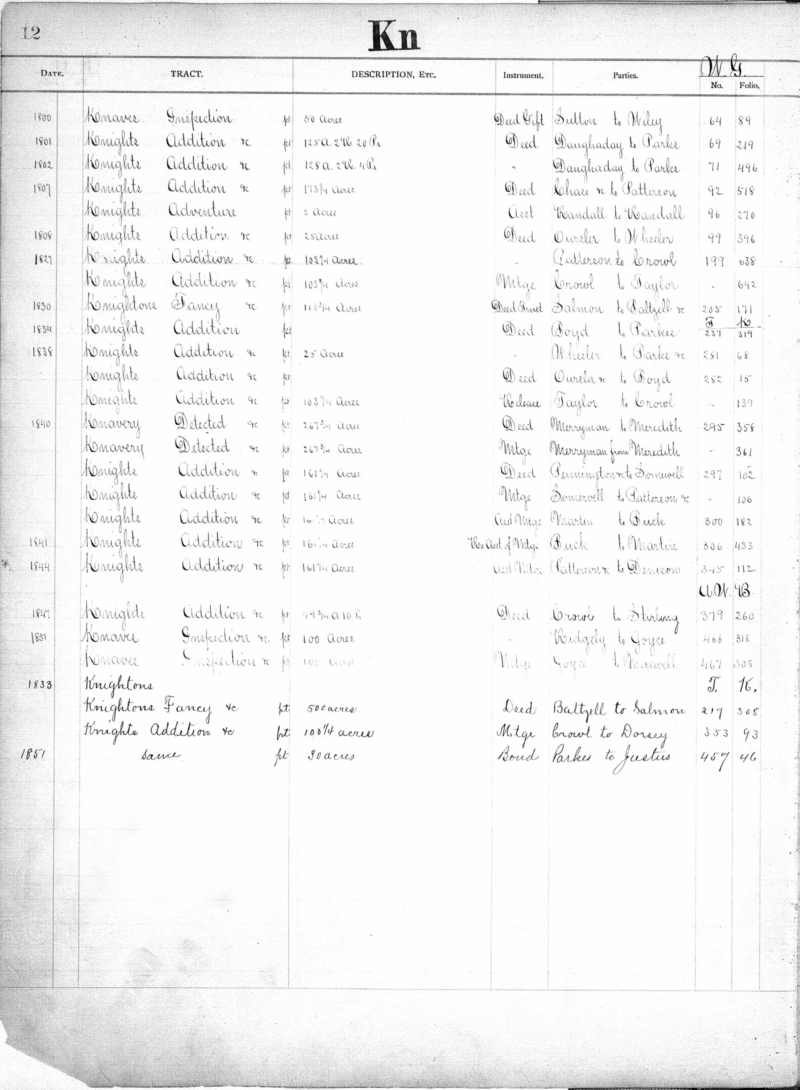 12
Kn
W. G.
DATE. TRACT. DESCRIPTION, ETC. Instrument. Parties. No. Folio.
1800 Knaves Inspection pt 50 Acres Deed Gift Sutton to Wiley 64 89
1801 Knights Addition &c pt 125 A. 2 R. 20 Ps Deed Daughaday to Parke 69 219
1802 Knights Addition &c pt 128 A. 2 R. 4 Ps " Daughaday to Parke 71 496
1807 Knights Addition &c pt 173 1/4 Acres Deed Chase &c to Patterson 92 518
Knights Adventure pt 2 Acres Asst Randall to Randall 96 270
1808 Knights Addition &c pt 25 Acres Deed Oursler to Wheeler 99 396
1827 Knights Addition &c pt 103 3/4 Acres " Patterson &c to Crowl 199 638
Knights Addition &c pt 103 3/4 Acres Mtge Crowl to Taylor " 642
1830 Knightons Fancy &c pt Acres Deed Trust Salmon to Baltzell &c 205 171
T K
1834 Knights Addition pt Deed Boyd to Parkes 237 319
1838 Knights Addition &c pt 25 Acres " Wheeler to Parke &c 281 68
Knights Addition &c pt Deed Oursler to Boyd 282 15
Knights Addition &c pt 103 3/4 Acres Release Taylor to Crowl " 139
1840 Knavery Detected &c pt 267 3/4 Acres Deed Merryman to Meredith 295 358
Knavery Detected &c pt 267 3/4 Acres Mtge Merryman from Meredith " 361
Knights Addition &c pt 161 1/4 Acres Deed Pennington &c to Somervell 297 102
Knights Addition &c pt 161 1/4 Acres Mtge Somervell to Patterson &c " 106
Knights Addition &c pt Acres Asst Mtge Martin to Buck 300 182
1841 Knights Addition &c pt Acres Re Asst of Mtge Buck to Martin 306 433
1844 Knights Addition &c pt 161 1/4 Acres Asst Mtge Patterson &c to Denison 345 112
A. W. B.
1847 Knights Addition &c pt A 10 Ps Deed Crowl to Stirling 379 260
1851 Knaves Inspection &c pt 100 Acres " Ridgely to Goyce 318
Knaves Inspection &c pt 100 Acres Mtge Goyce to Maxwell 467 308
1833 Knightons T. K.
Knightons Fancy &c pt 500 acres Deed Baltzell to Salmon 217 305
Knights Addition &c pt 100 1/4 acres Mtge Crowl to Dorsey 353 93
1851 same pt 30 acres Bond Parkes to Justus 457 46